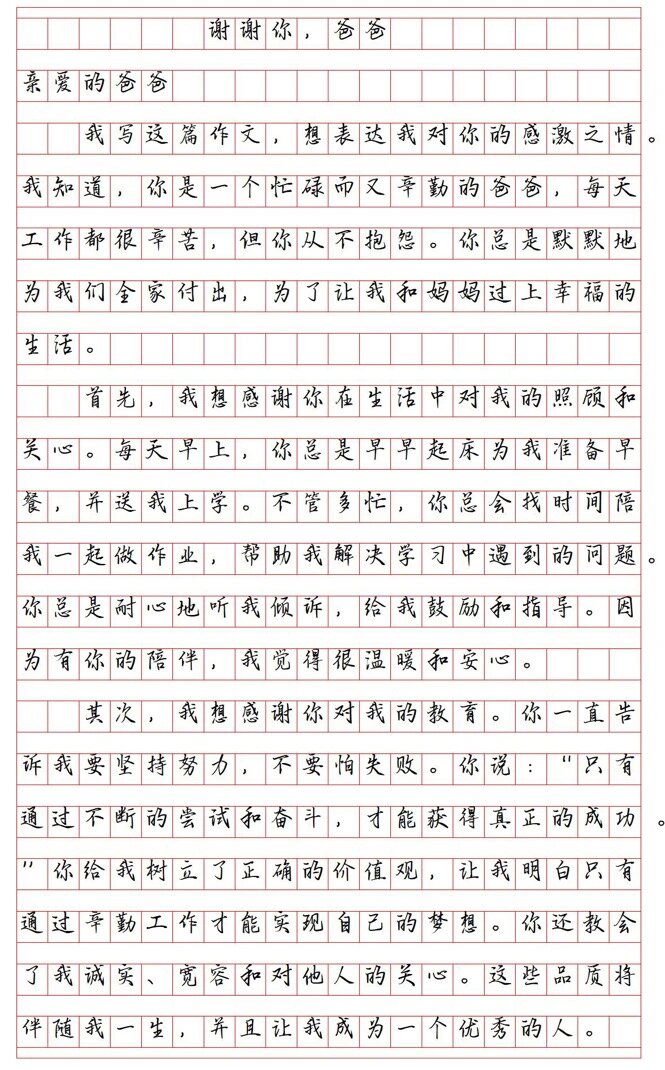 谢谢你，爸爸
亲爱的爸爸
我写这篇作文，想表达我对你的感激之情。
我知道，你是一个忙碌而又辛勤的爸爸，每天
工作都很辛苦，但你从不抱怨。你总是默默地
为我们全家付出，为了让我和妈妈过上幸福的
生活。
首先，我想感谢你在生活中对我的照顾和
关心。每天早上，你总是早早起床为我准备早
餐，并送我上学。不管多忙，你总会找时间陪
我一起做作业，帮助我解决学习中遇到的问题。
你总是耐心地听我倾诉，给我鼓励和指导。因
为有你的陪伴，我觉得很温暖和安心。
其次，我想感谢你对我的教育。你一直告
诉我要坚持努力，不要怕失败。你说："只有
通过不断的尝试和奋斗，才能获得真正的成功。
"你给我树立了正确的价值观，让我明白只有
通过辛勤工作才能实现自己的梦想。你还教会
了我诚实、宽容和对他人的关心。这些品质将
伴随我一生，并且让我成为一个优秀的人。